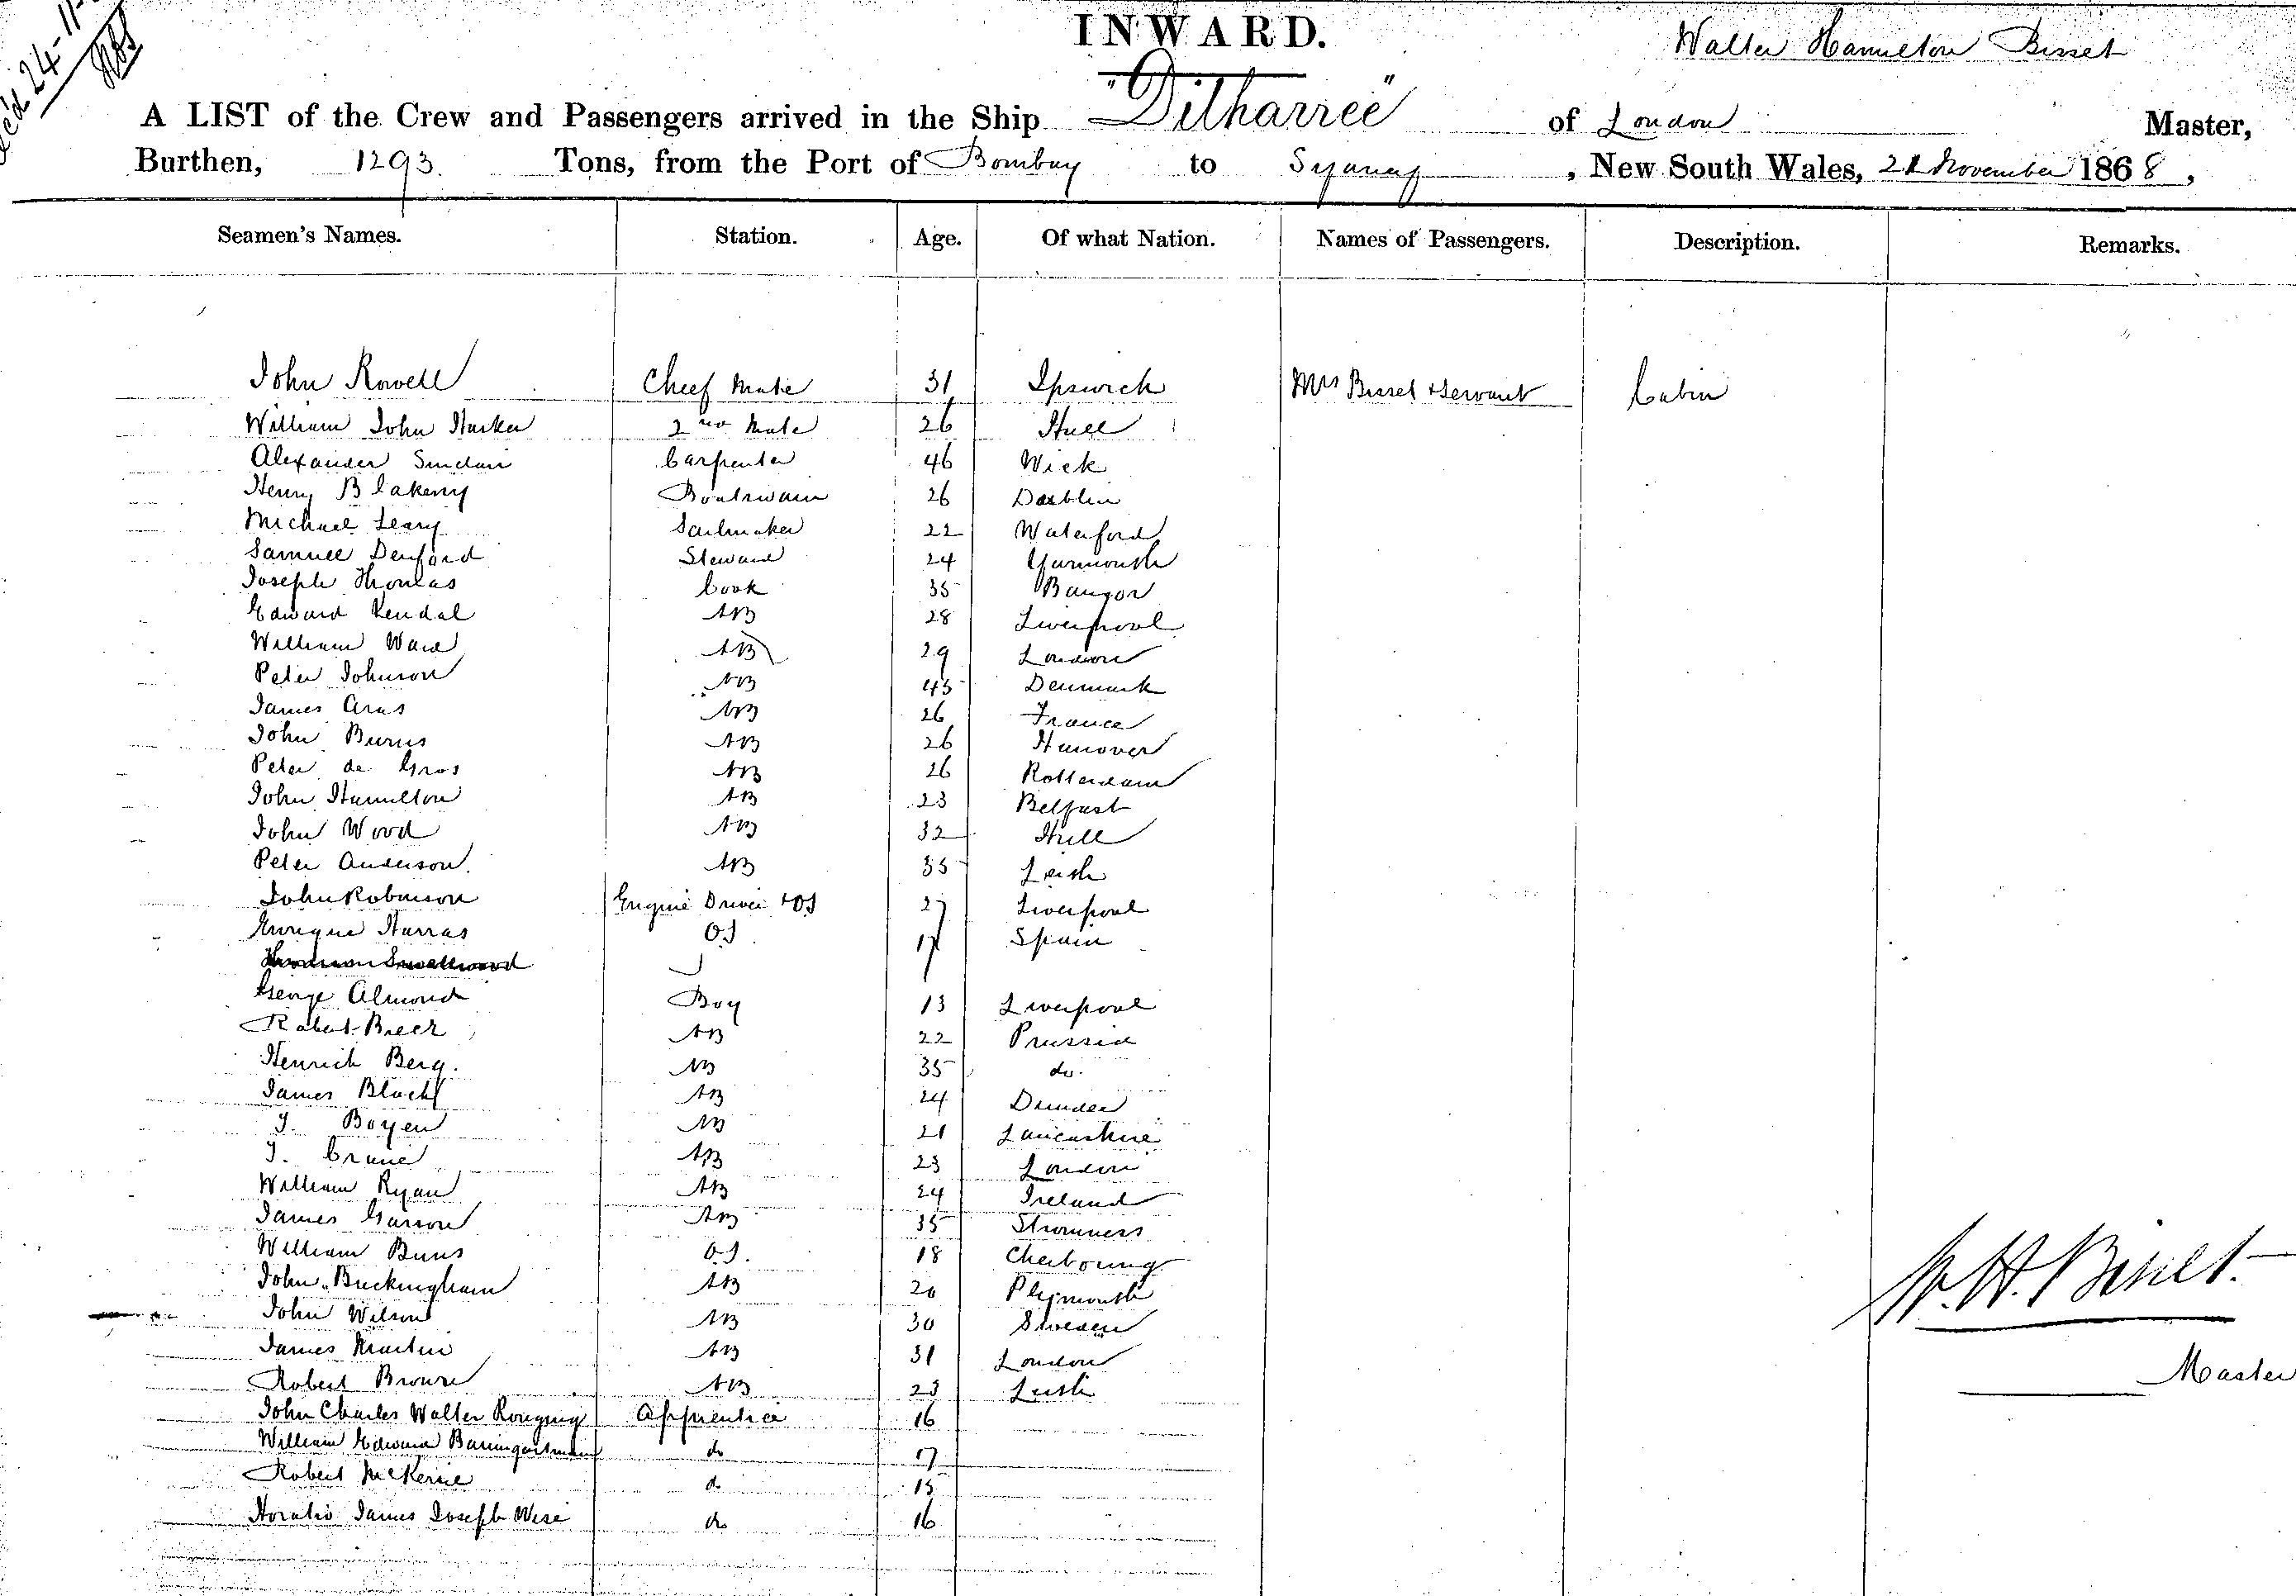 Rec'd 24-11-
INWARD.
Walter Hamilton Bisset
A LIST of the Crew and Passengers arrived in the Ship "Dilharree" of London Master,
Burthen, 1293 Tons, from the Port of Bombay to Sydney, New South Wales, 21 November 1868,
Seamen's Names. Station. Age. Of what Nation. Names of Passengers. Description. Remarks.
John Rowell Cheef Mate 31 Ipswich Mrs Bisset + Servant Cabin
William John Harker 2nd Mate 26 Hull
Alexander Sinclair Carpenter 46 Wick
Henry Blakeny Boatswain 26 Dublin
Michael Leary Sailmaker 22 Waterford
Samuel Denford Steward 24 Yarmouth
Joseph Thomas Cook 35 Bangor
Edward Kendal AB 28 Liverpool
William Ward AB 29 London
Peter Johnson AB 45 Denmark
James Aras AB 26 France
John Burns AB 26 Hanover
Peter de Gros AB 26 Rotterdam
John Hamilton AB 23 Belfast
John Wood AB 32 Hull
Peter Anderson. AB 35 Leith
John Robinson Engine Driver + OS 27 Liverpool
Enrique Harras O.S 17 Spain
Smallwood
George Almond Boy 13 Liverpool
Robert Beer AB 22 Prussia
Henrich Berg. AB 35 do.
James Black AB 24 Dundee
J. Boyen AB 21 Lancashire
J. Crane AB 23 London
William Ryan AB 24 Ireland
James Garson AB 35 Stromness
William Buns O.S. 18 Cherbourg
John Buckingham AB 20 Plymouth
John Wilson AB 30 Sweden
James Martin AB 31 London
Robert Brown AB 23 Leith
W. H. Bisset.
Master
John Charles Walter Apprentice 16
William Edward Baumgartmann do 17
Robert McKerie do 15
Horatio James Joseph Wise do 16